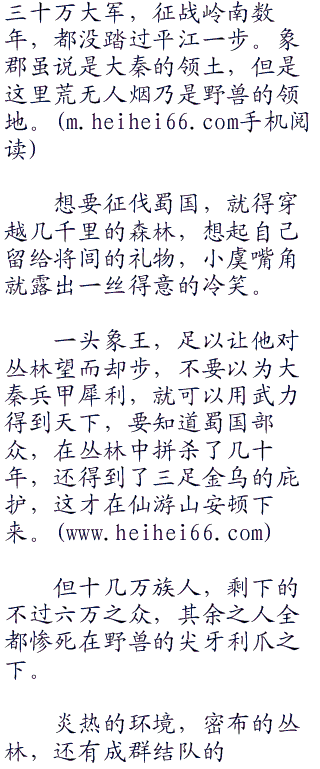 三十万大军，征战岭南数
年，都没踏过平江一步。象
郡虽说是大秦的领土，但是
这里荒无人烟乃是野兽的领
地。(m.heihei66.com手机阅
读)
想要征伐蜀国，就得穿
越几千里的森林，想起自己
留给将闾的礼物，小虞嘴角
就露出一丝得意的冷笑。
一头象王，足以让他对
丛林望而却步，不要以为大
秦兵甲犀利，就可以用武力
得到天下，要知道蜀国部
众，在丛林中拼杀了几十
年，还得到了三足金乌的庇
护，这才在仙游山安顿下
来。(www.heihei66.com)
但十几万族人，剩下的
不过六万之众，其余之人全
都惨死在野兽的尖牙利爪之
下。
炎热的环境，密布的丛
林，还有成群结队的